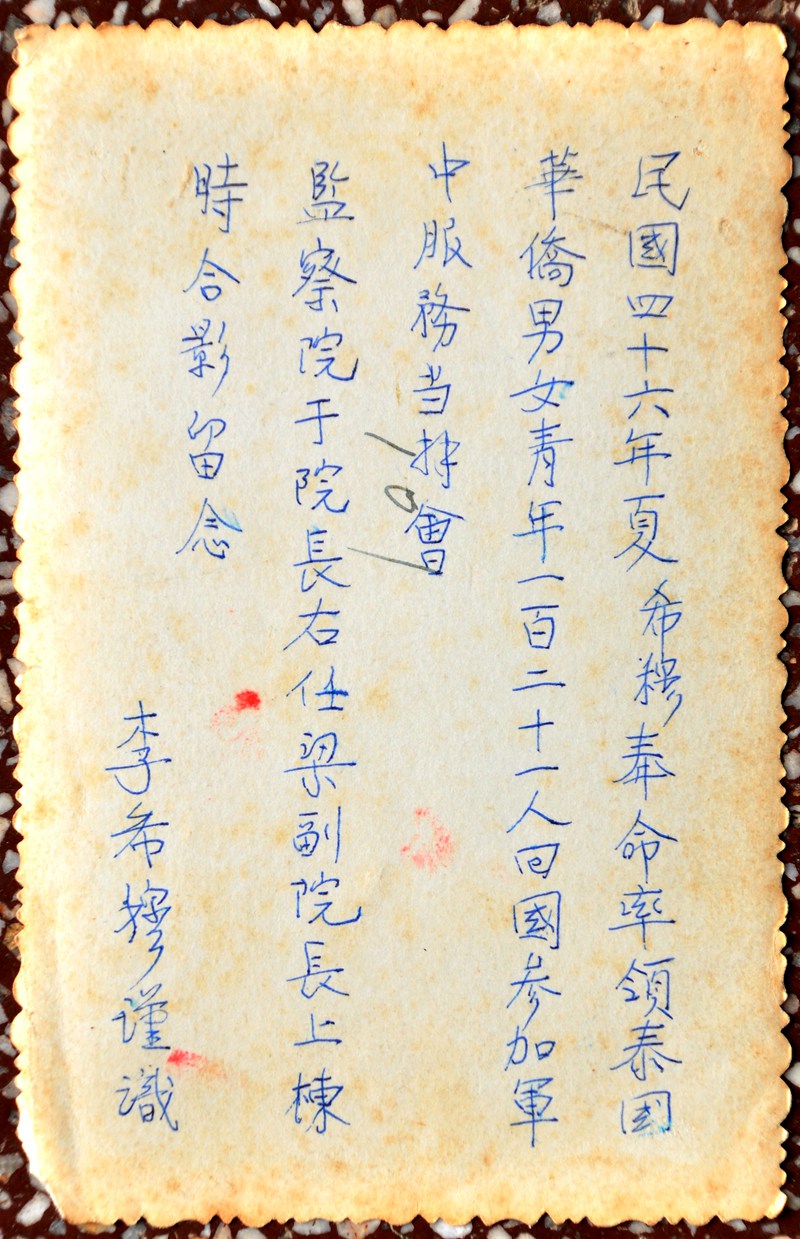 民國四十六年夏希穆奉命率領泰國
華僑男女青年一百二十一人回國参加軍
中服務当拝會
監察院于院長右任梁副院長上棟
時合影留念
李希穆謹識